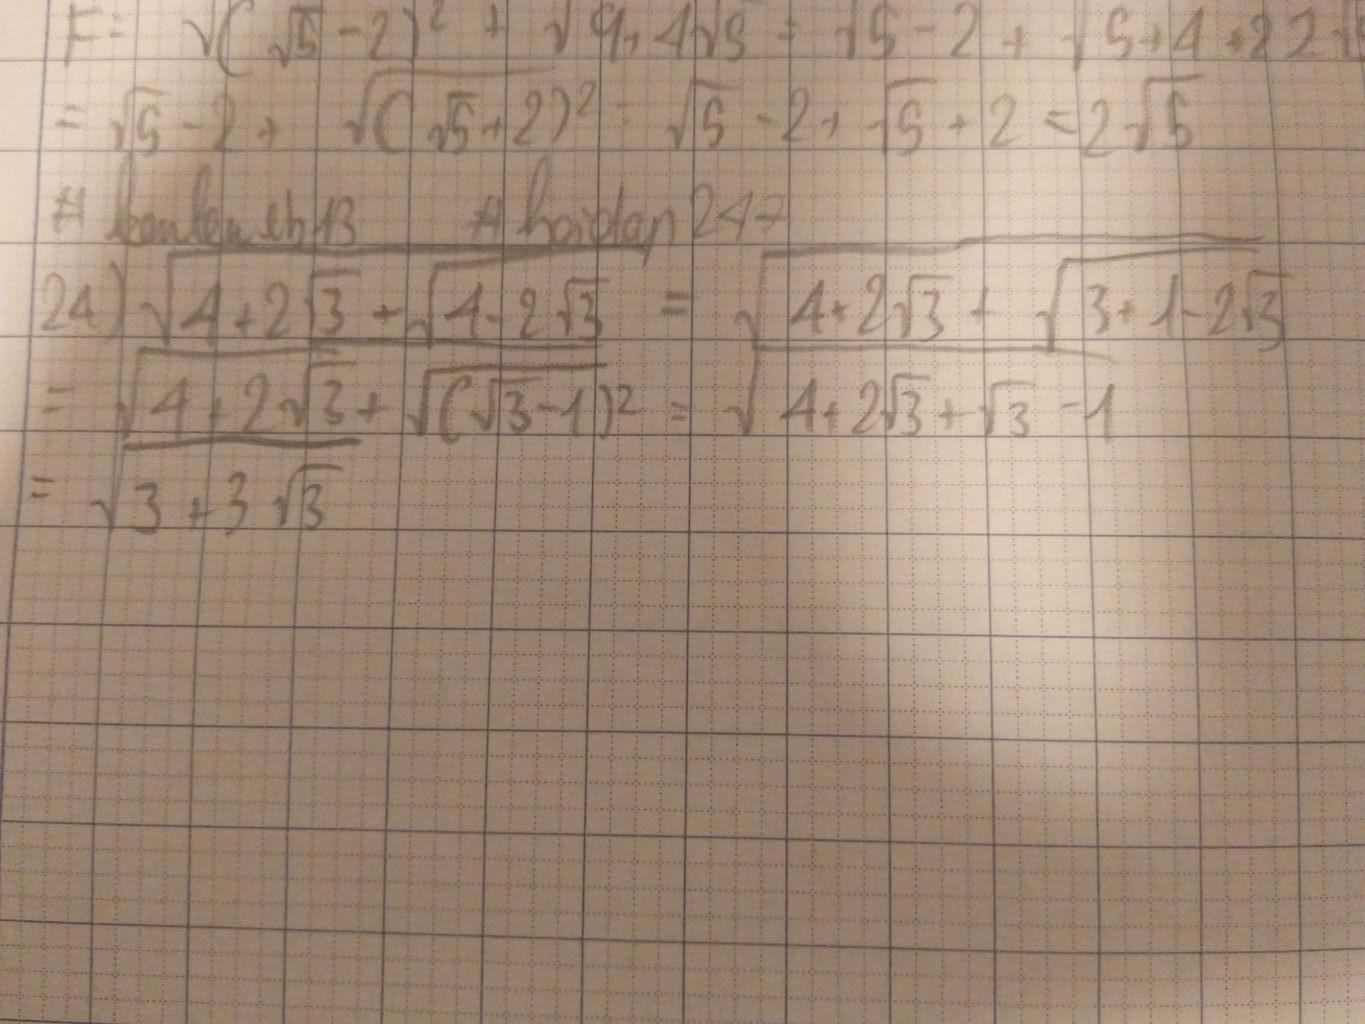 F = √(√5 - 2)² + √9+4√5 = √5 - 2 + √5+4+22√
= √5 - 2 + √(√5+2)² = √5 - 2 + √5 + 2 = 2√5
# # hoidap 247
24) √4+2√3 + √4-2√3 = √4+2√3 + √3+1-2√3
= √4+2√3 + √(√3-1)² = √4+2√3+√3-1
= √3+3√3